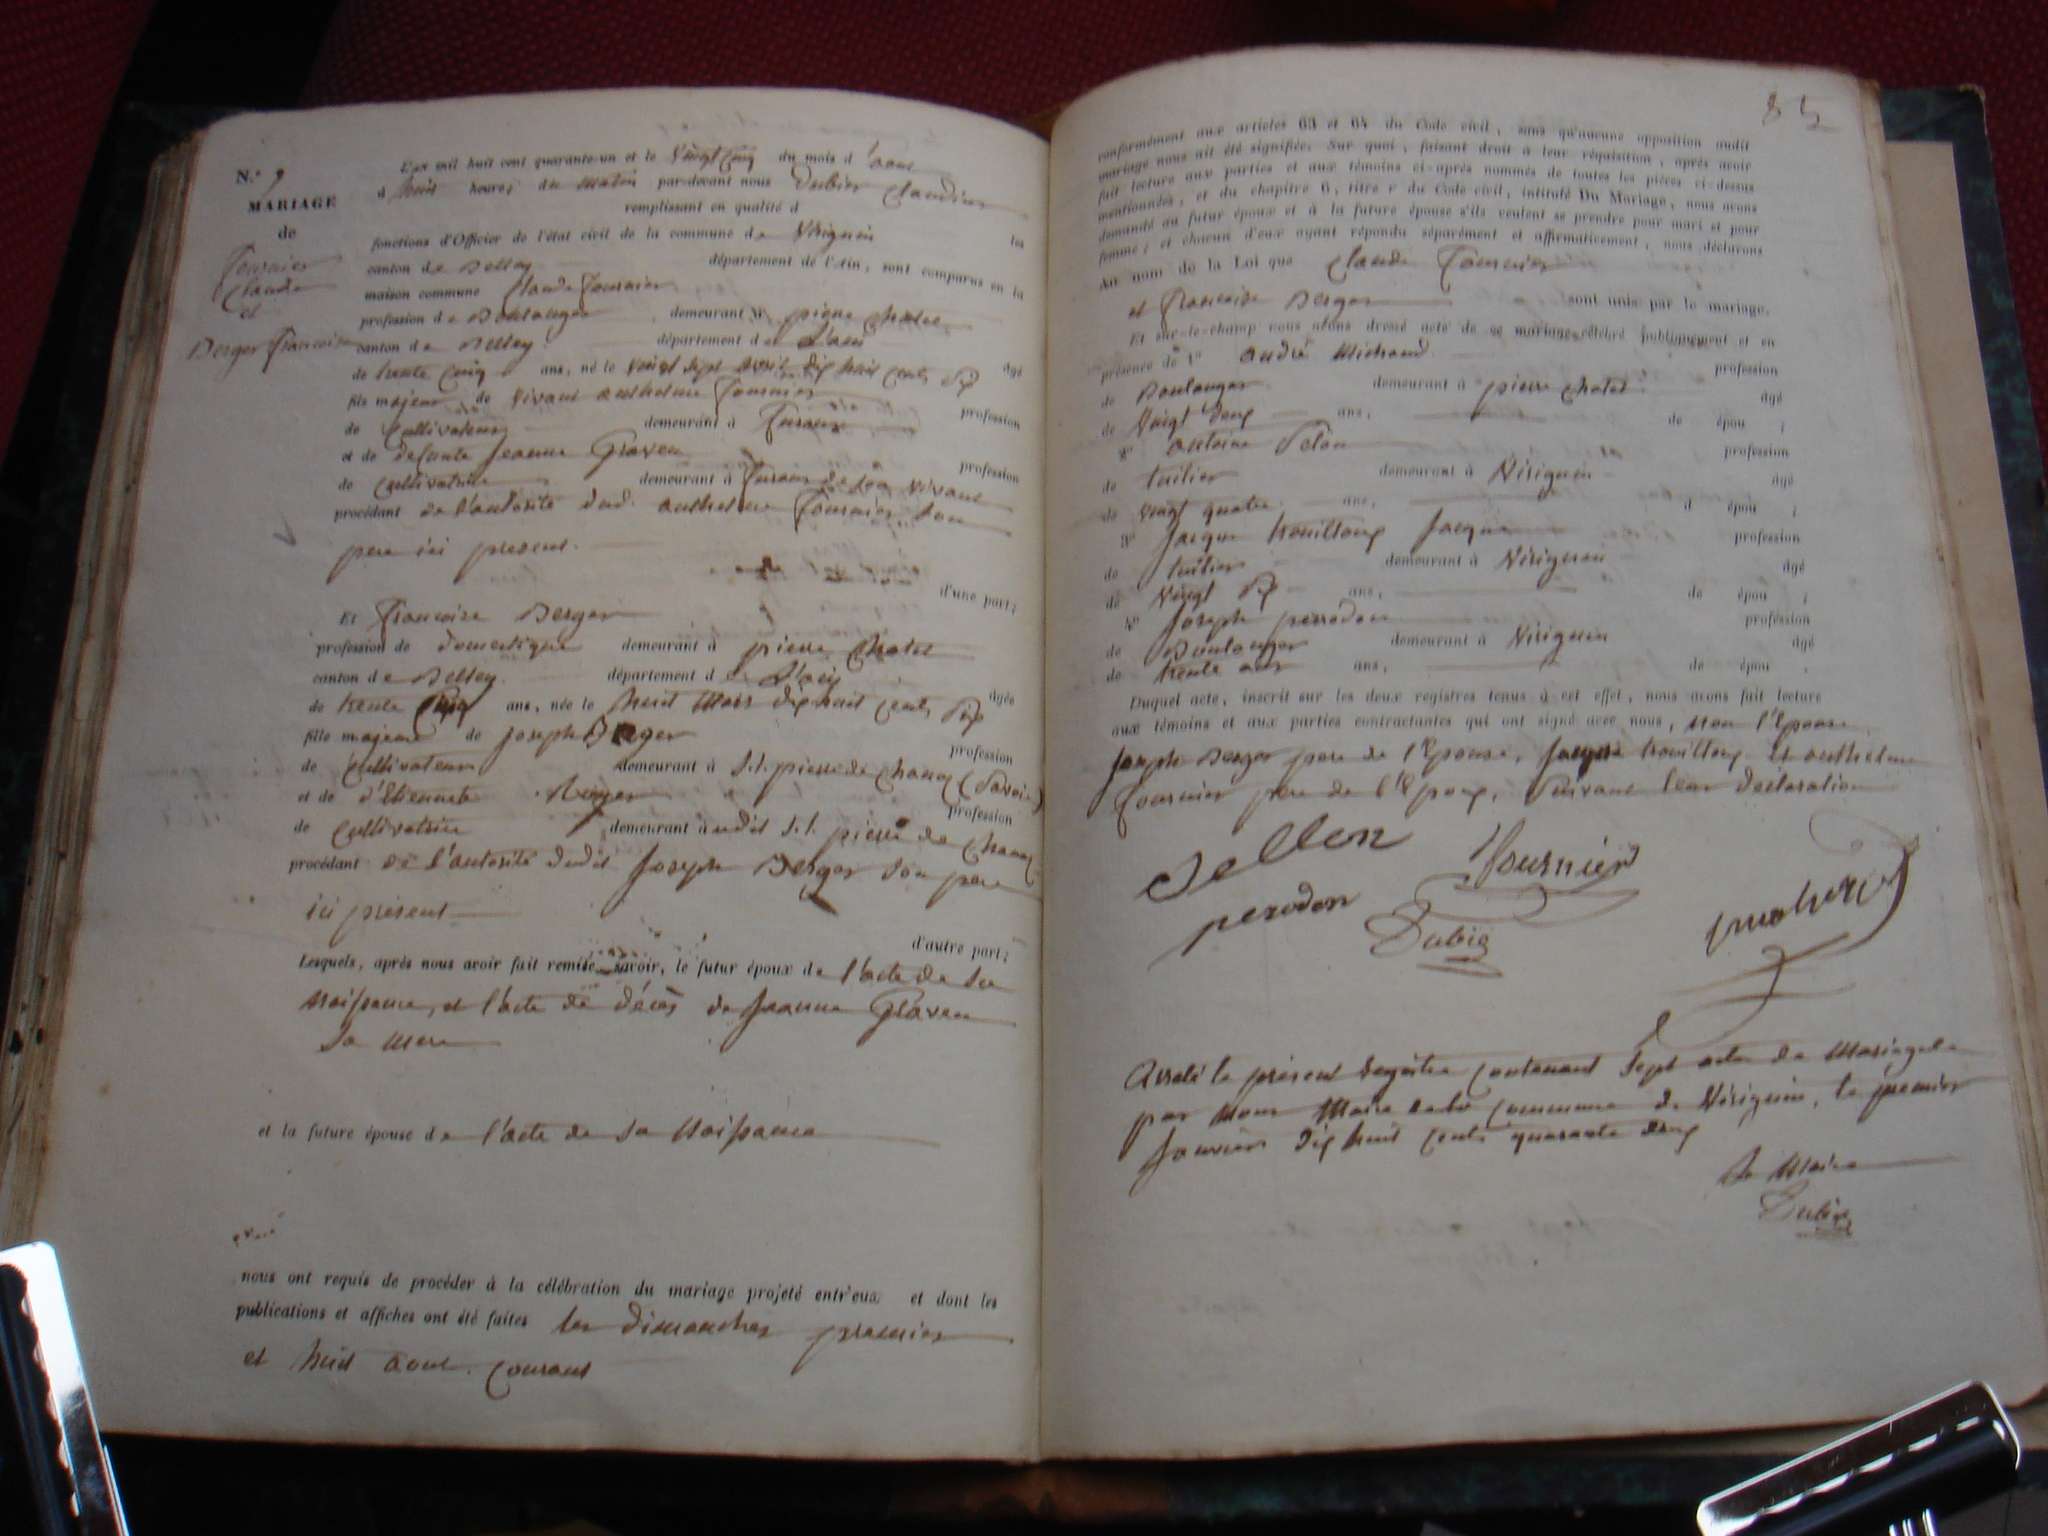 N.º 9
MARIAGE
de
Fournier
Claude
et
Berger Francoise
L'an mil huit cent quarante-un et le vingt cinq du mois d'aout
à huit heures du matin par-devant nous Dubier Claudius
remplissant en qualité d les
fonctions d'Officier de l'état civil de la commune de Virignin
canton de Belley département de l'Ain, sont comparus en la
maison commune Claude Fournier
profession de Boulanger demeurant à pierre Chatel
canton de Belley département de L'ain
âgé
de trente cinq ans, né le vingt sept avril dix huit cents six
fils majeur de vivant anthelme Fournier
profession
de Cultivateur demeurant à
et de defunte Jeanne Graven
profession
de cultivatrice demeurant à de son vivant
procédant de l'autorité dud. anthelme Fournier son
pere ici present.
d'une part;
Et Francoise Berger
profession de domestique demeurant à pierre Chatel
canton de Belley département de L'ain
âgée
de trente cinq ans, née le huit Mars dix huit cents six
fille majeure de Joseph Berger
profession
de Cultivateur demeurant à S.t. pierre de (Savoie)
et de d'Etiennete
profession
de cultivatrice demeurant à udit S.t. pierre de
procédant de l'autorité dudit Joseph Berger son pere
ici présent
d'autre part;
Lesquels, après nous avoir fait remise, savoir, le futur époux de l'acte de sa
naissance, et l'acte de décès de Jeanne Graven
sa mere
et la future épouse de l'acte de sa Naissance
nous ont requis de procéder à la célébration du mariage projeté entr'eux et dont les
publications et affiches ont été faites les dimanches premier
et huit aout courant
85
conformément aux articles 63 et 64 du Code civil, sans qu'aucune opposition audit
mariage nous ait été signifiée. Sur quoi, faisant droit à leur réquisition, après avoir
fait lecture aux parties et aux témoins ci-après nommés de toutes les pièces ci-dessus
mentionnées, et du chapitre 6, titre v du Code civil, intitulé Du Mariage, nous avons
demandé au futur époux et à la future épouse s'ils veulent se prendre pour mari et pour
femme; et chacun d'eux ayant répondu séparément et affirmativement, nous déclarons
au nom de la Loi que Claude Fournier
et Francoise Berger sont unis par le mariage.
Et sur-le-champ nous avons dressé acte de ce mariage célébré publiquement et en
présence de 1º andré Michaud profession
de Boulanger demeurant à pierre Chatel âgé
de Vingt deux ans, de épou ;
2º antoine profession
de tuilier demeurant à Virignin âgé
de vingt quatre ans, d épou ;
3º Jacque trouilloux Jacque profession
de tuilier demeurant à Virignin âgé
de vingt six ans, de épou ;
4º Joseph perrodon profession
de Boulanger demeurant à Virignin âgé
de trente ans ans, de épou .
Duquel acte, inscrit sur les deux registres tenus à cet effet, nous avons fait lecture
aux témoins et aux parties contractantes qui ont signé avec nous, non l'Epouse
Joseph Berger pere de l'Epouse, Jacque trouilloux et anthelme
Fournier pere de l'Epoux, Suivant leur declaration
Fournier
perodon
Dubie
Arreté le présent registre contenant sept acte de Mariage
par nous Maire de la commune de Virignin, le premier
Janvier dix huit cents quarante deux
Le Maire
Dubie